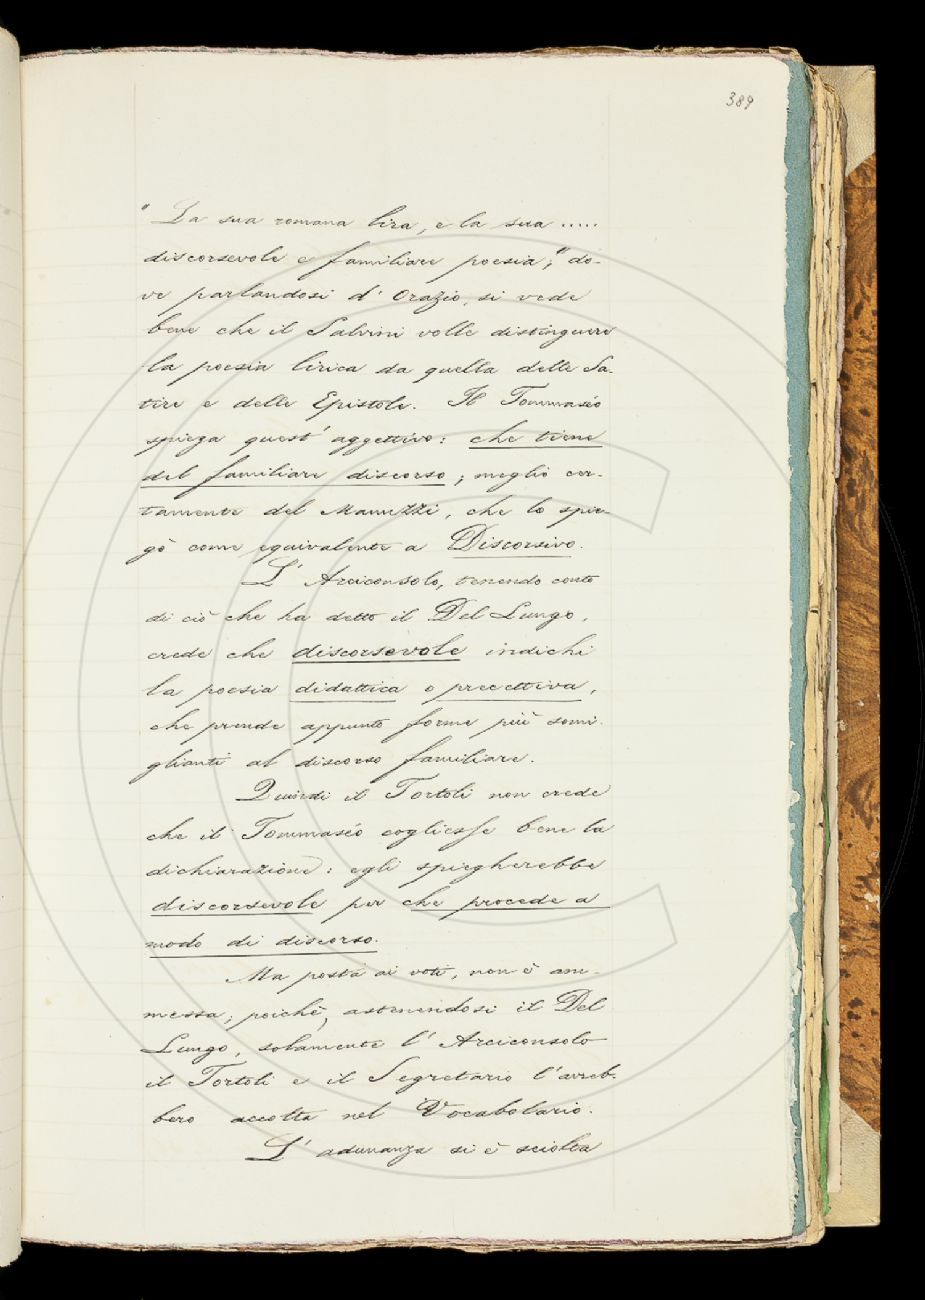 389
" La sua romana lira, e la sua .....
discorsevole e familiare poesia; " do-
ve parlandosi d' Orazio, si vede
bene che il Salvini volle distinguere
la poesia lirica da quella delle Sa-
tire e delle Epistole. Il Tommasèo
spiega quest' aggettivo: che tiene
del familiare discorso; meglio cer-
tamente del Manuzzi, che lo spie-
gò come equivalente a Discorsivo.
L' Arciconsolo, tenendo conto
di ciò che ha detto il Del Lungo,
crede che discorsevole indichi
la poesia didattica o precettiva,
che prende appunto forme più somi-
glianti al discorso familiare.
Quindi il Tortoli non crede
che il Tommasèo cogliesse bene la
dichiarazione: egli spiegherebbe
discorsevole per che procede a
modo di discorso.
Ma posta ai voti, non è am-
messa; poichè, astenendosi il Del
Lungo, solamente l' Arciconsolo
il Tortoli e il Segretario l' avreb-
bero accolta nel Vocabolario.
L' adunanza si è sciolta